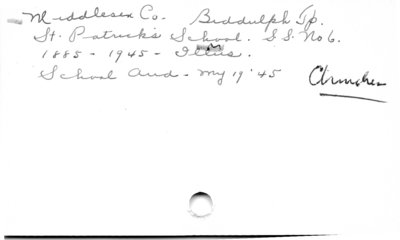 Middlesex Co. Biddulph Tp.
St. Patrick's School. S.S. No 6.
1885 - 1945 - Illus.
School Aud - My 19 '45